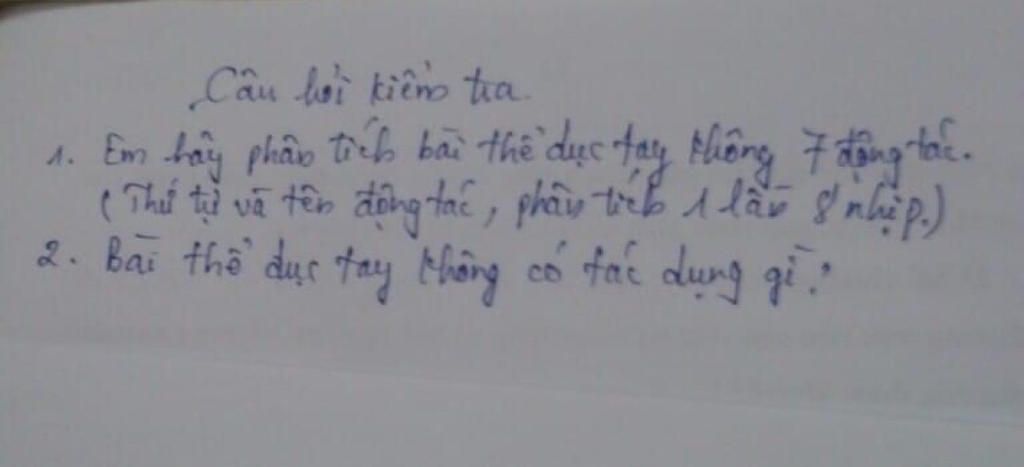 Câu hỏi kiểm tra.
1. Em hãy phân tích bài thể dục tay không 7 động tác.
(Thứ tự và tên động tác, phân tích 1 lần 8 nhịp.)
2. Bài thể dục tay không có tác dụng gì?